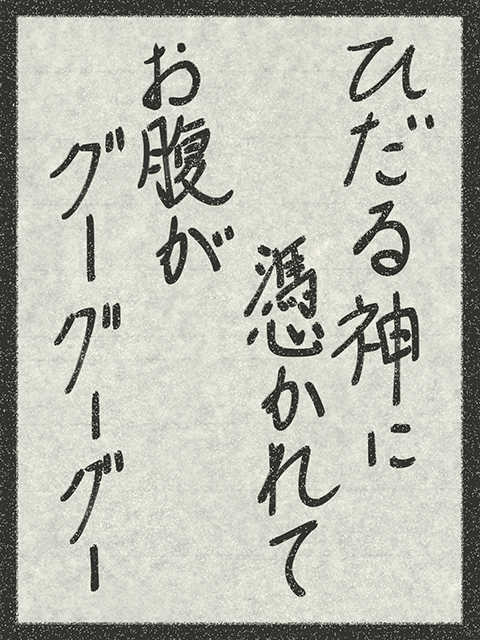 ひだる神に
憑かれて
お腹が
グーグーグー